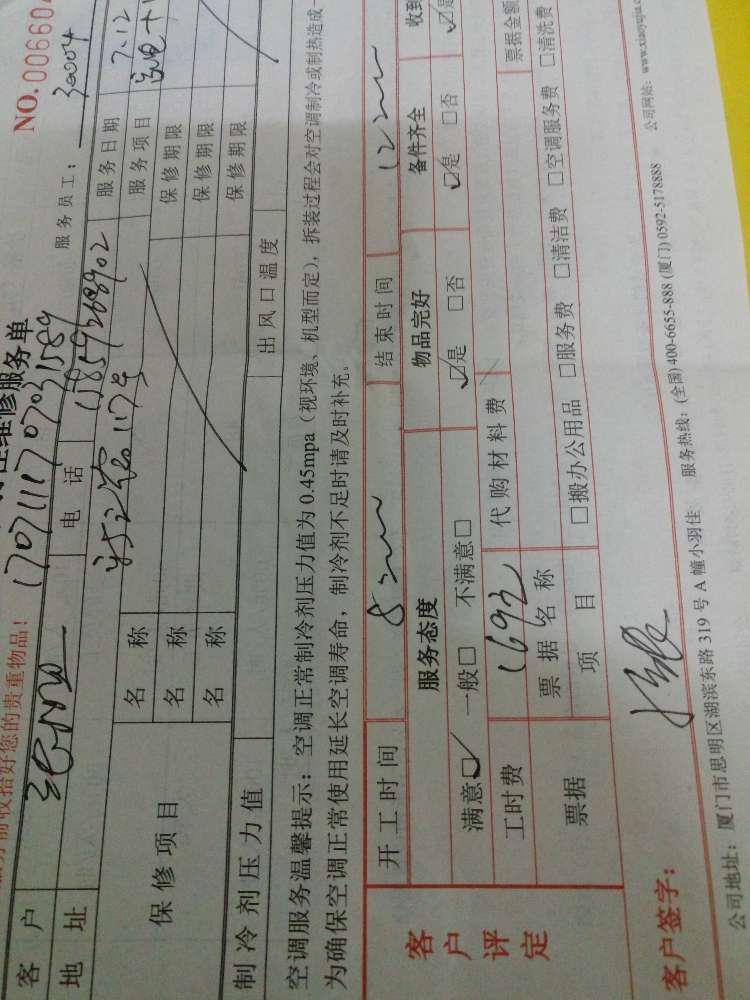 NO.006604
维修服务单
服务前收拾好您的贵重物品！
服务员工：30004
客户 电话 13859268902 服务日期 7.12
地址 服务项目
保修项目 名称 保修期限
名称 保修期限
名称 保修期限
制冷剂压力值 出风口温度
空调服务温馨提示：空调正常制冷剂压力值为0.45mpa（视环境、机型而定），拆装过程会对空调制冷或制热造成
为确保空调正常使用延长空调寿命，制冷剂不足时请及时补充。
客户评定 开工时间 8 结束时间 12
服务态度 物品完好 备件齐全 收到
满意☑ 一般□ 不满意□ ☑是 □否 ☑是 □否 ☑是
工时费 1692 代购材料费
票据 票据名称 票据金额
项目 □搬办公用品 □服务费 □清洁费 □空调服务费 □清洗费
客户签字：
公司地址：厦门市思明区湖滨东路319号A幢小羽佳 服务热线：(全国)400-6655-888 (厦门)0592-5178888 公司网站：www.xiaoyujia.co